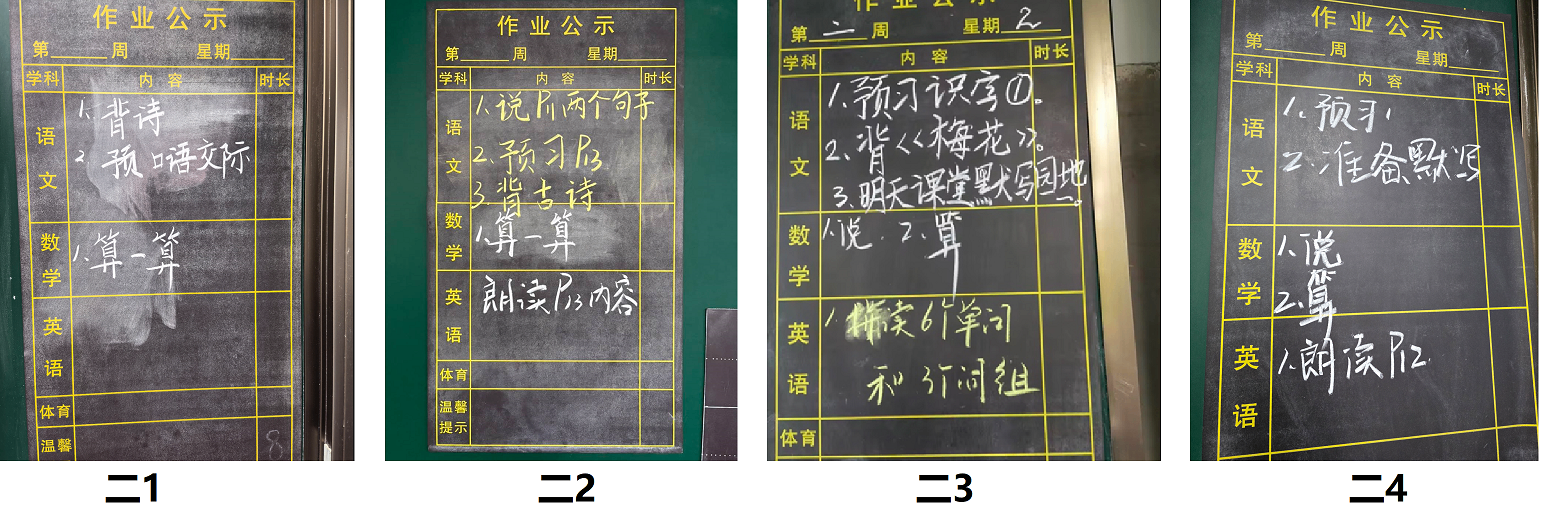 作业公示
第____周 星期____
学科 内容 时长
语文
1. 背诗
2 预口语交际
数学
1. 算一算
英语
体育
温馨
8
二1
作业公示
第____周 星期____
学科 内容 时长
语文
1. 说P11两个句子
2. 预习P13
3. 背古诗
数学
1. 算一算
英语
朗读P13内容
体育
温馨提示
二2
作业公示
第 二 周 星期 2
学科 内容 时长
语文
1. 预习识字①。
2. 背《梅花》。
3. 明天课堂默写园地一。
数学
1. 说. 2. 算
英语
1. 读6个单词
和3个词组
体育
二3
作业公示
第____周 星期____
学科 内容 时长
语文
1. 预习1
2. 准备默写
数学
1. 说
2. 算
英语
1. 朗读P12
二4